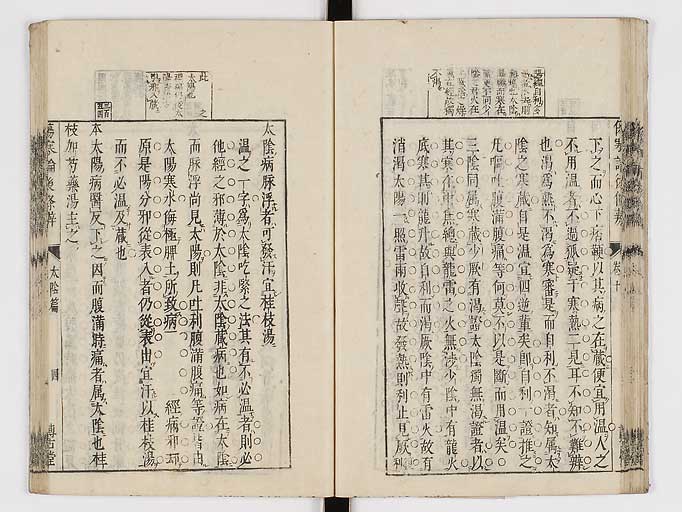 下之而心下痞鞕以其病之在藏便宜用溫人之
不用溫者不過狐疑于寒熱二見耳不知不難辨
也渴爲熱不渴為寒審是而自利不渴者知屬太
陰之寒藏自是溫宜四逆輩矣卽自利一證推之
凡嘔吐腹滿腹痛等何莫不以是斷而用溫矣
三陰同屬寒藏少厥有渴證太陰獨無渴證者以
其寒在中焦總與龍雷之火無涉少陰中有龍火
底寒甚則龍升故自利而渴厥陰中有雷火故有
消渴太陽一照雷雨收聲故發熱則利止見厥利
太陰病脉浮者可發汗宜桂枝湯
溫之一字爲太陰吃緊之法其有不必溫者則必
他經之邪薄於太陰非太陰藏病也如病在太陰
而脉浮尚見太陽則凡吐利腹滿腹痛等證皆由
太陽寒水侮極脾土所致病一經病邪却
原是陽分邪從表入者仍從表出宜汗以桂枝湯
而不必溫及藏也
本太陽病醫反下之因而腹滿時痛者屬太陰也桂
枝加芍藥湯主之
傷寒論後條辨
太陰篇
四